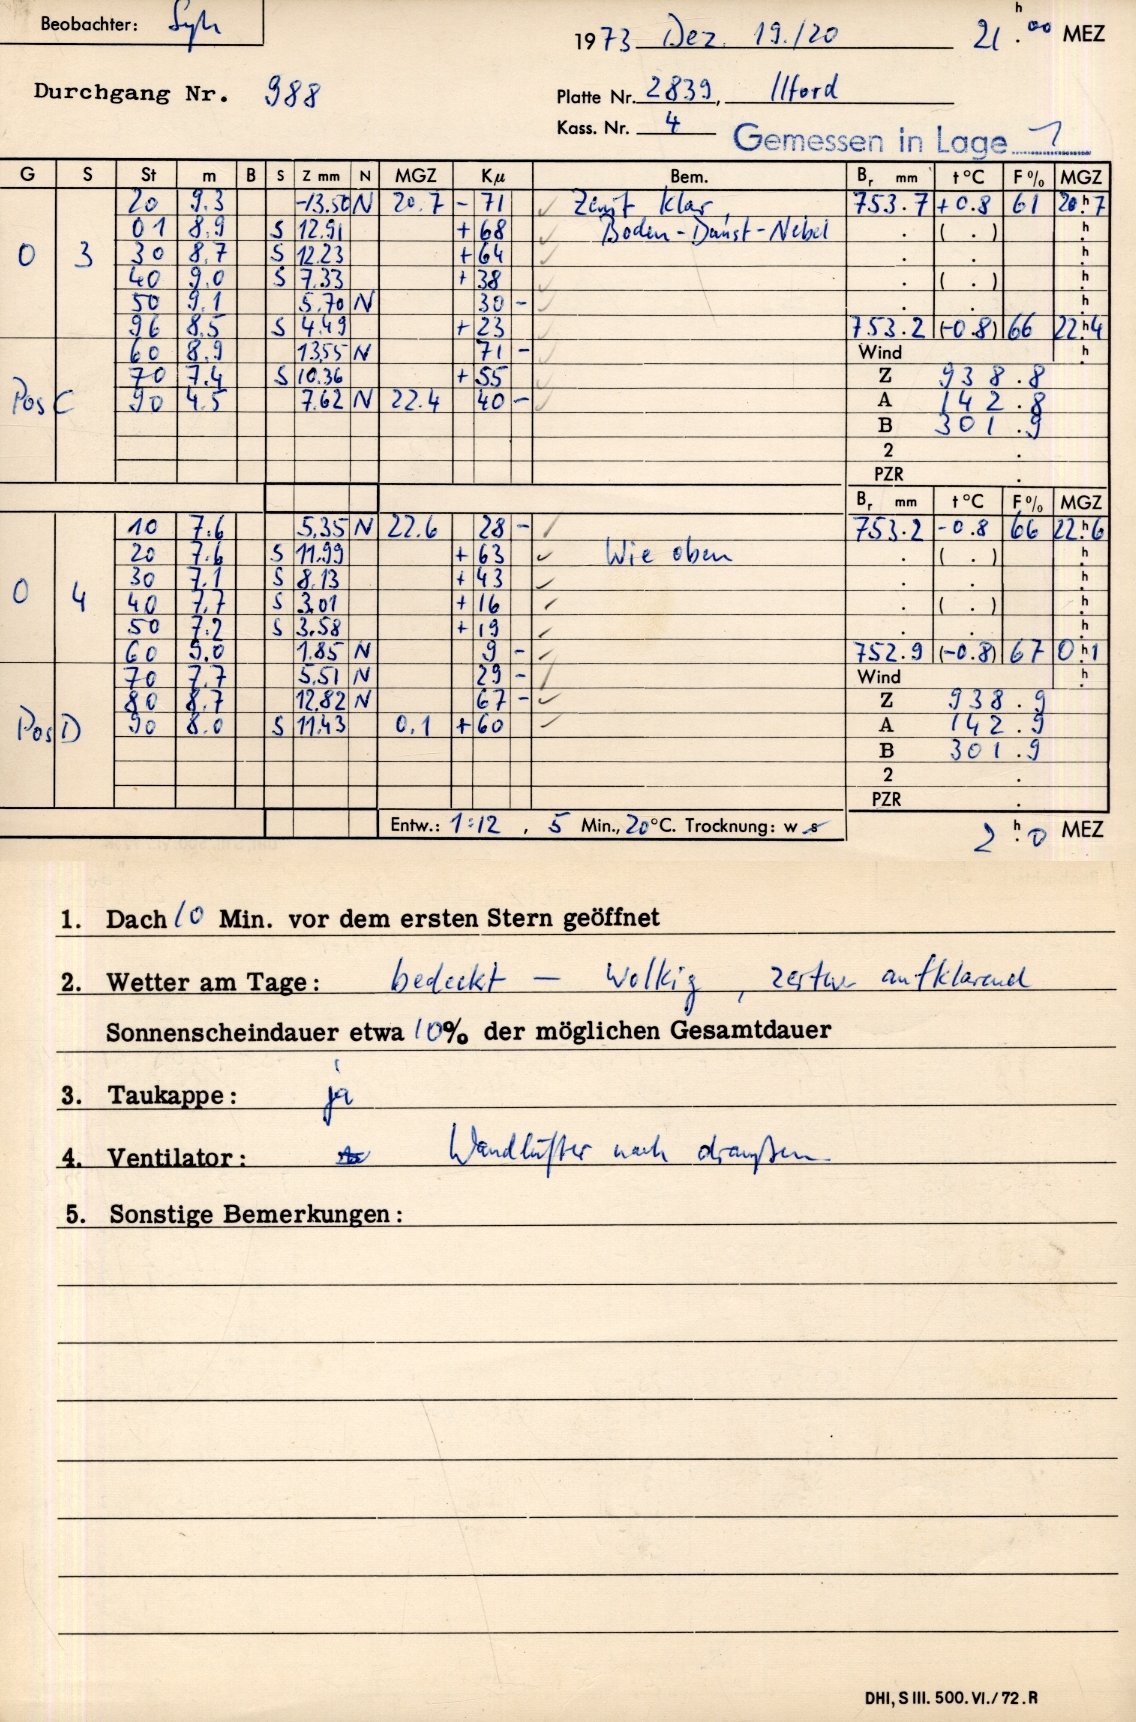 Beobachter: Syh
1973 Dez. 19./20 21 h . 00 MEZ
Durchgang Nr. 988
Platte Nr. 2839, Ilford
Kass. Nr. 4
Gemessen in Lage 1
G S St m B S Z mm N MGZ Kμ Bem. Br mm t °C F % MGZ
20 9.3 -13.50 N 20.7 - 71 Zenit klar, 753.7 +0.8 61 20 h . 7
01 8.9 S 12.91 + 68 Boden-Dunst-Nebel . ( . ) h .
0 3 30 8.7 S 12.23 + 64 . . h .
40 9.0 S 7.33 + 38 . ( . ) h .
50 9.1 5.70 N 30 - . . h .
96 8.5 S 4.49 + 23 753.2 (-0.8) 66 22 h . 4
60 8.9 13.55 N 71 - Wind h .
70 7.4 S 10.36 + 55 Z 938.8
Pos C 90 4.5 7.62 N 22.4 40 - A 142.8
B 301.9
2 .
PZR .
Br mm t °C F % MGZ
10 7.6 5.35 N 22.6 28 - 753.2 -0.8 66 22 h . 6
20 7.6 S 11.99 + 63 Wie oben . ( . ) h .
0 4 30 7.1 S 8.13 + 43 . . h .
40 7.7 S 3.01 + 16 . ( . ) h .
50 7.2 S 3.58 + 19 . . h .
60 9.0 1.85 N 9 - 752.9 (-0.8) 67 0 h . 1
70 7.7 5.51 N 29 - Wind h .
80 8.7 12.82 N 67 - Z 938.9
Pos D 90 8.0 S 11.43 0.1 + 60 A 142.9
B 301.9
2 .
PZR .
Entw.: 1:12 , 5 Min., 20 °C. Trocknung: w s
2 h . 0 MEZ
1. Dach 10 Min. vor dem ersten Stern geöffnet
2. Wetter am Tage: bedeckt — wolkig, zeitw. aufklarend
Sonnenscheindauer etwa 10% der möglichen Gesamtdauer
3. Taukappe: ja
4. Ventilator: Wandlüfter nach draußen
5. Sonstige Bemerkungen:
DHI, S III. 500. VI./72. R